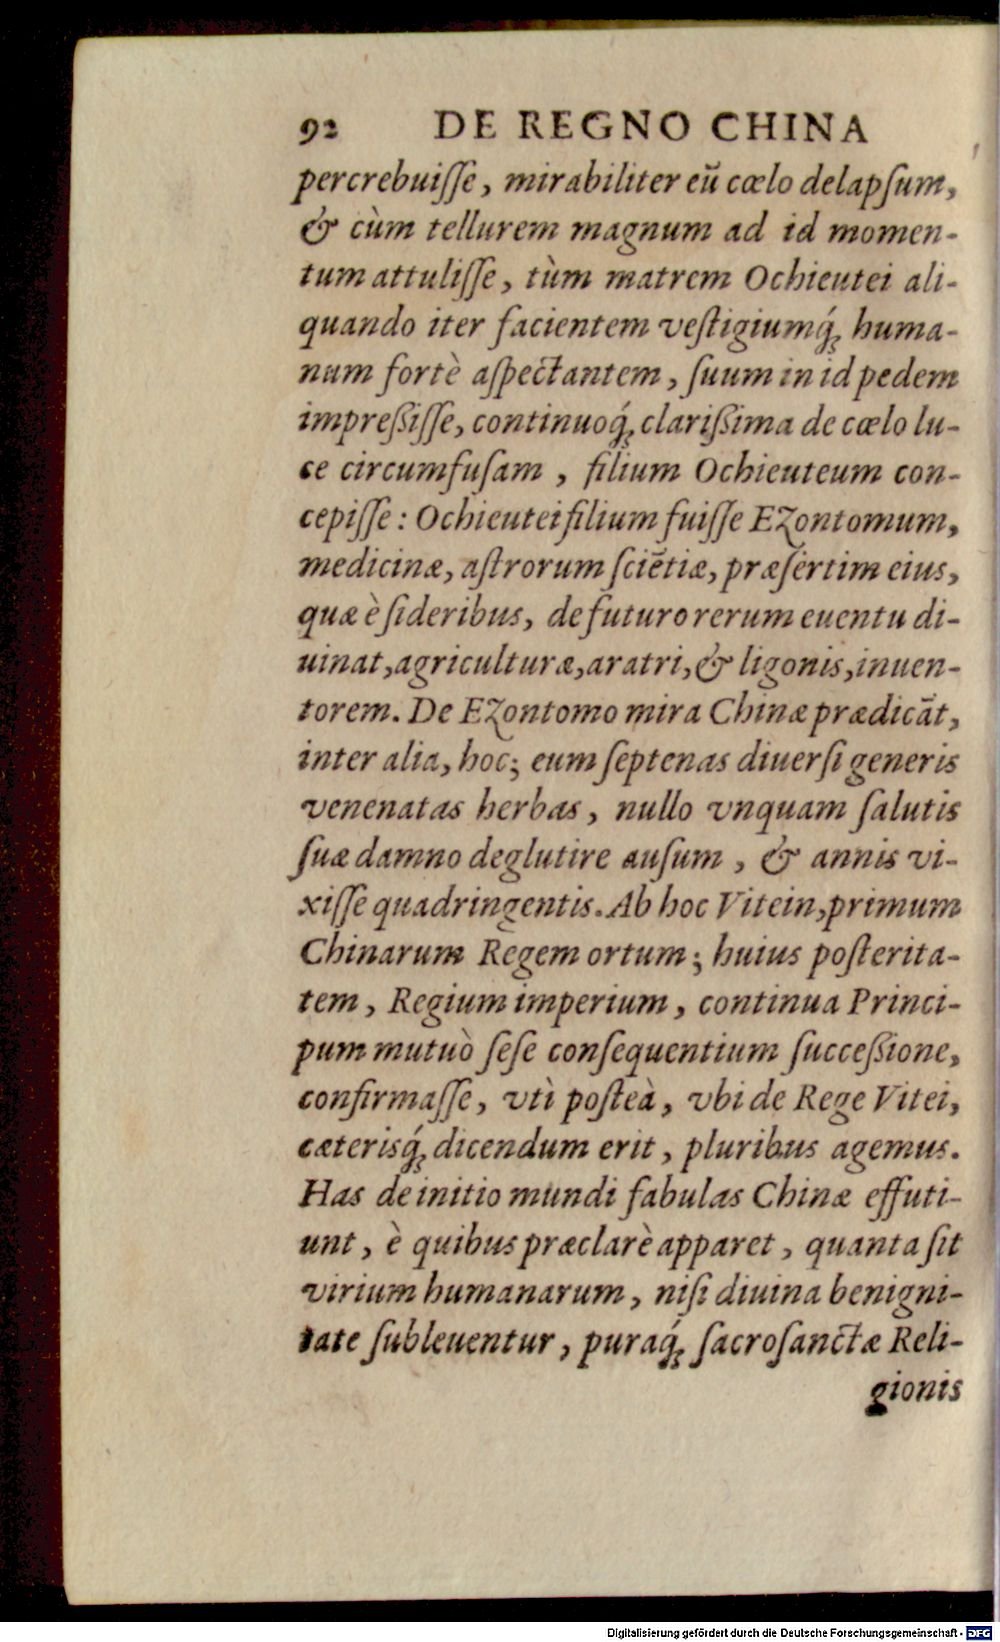 92 DE REGNO CHINA
percrebuiſſe, mirabiliter eũ cœlo delapſum,
& cùm tellurem magnum ad id momen-
tum attuliſſe, tùm matrem Ochieutei ali-
quando iter facientem veſtigiumq́ꝫ huma-
num fortè aſpectantem, ſuum in id pedem
impreßiſſe, continuoq́ꝫ clarißima de cœlo lu-
ce circumfuſam, filium Ochieuteum con-
cepiſſe: Ochieutei filium fuiſſe EZontomum,
medicinæ, aſtrorum ſciẽtiæ, præſertim eius,
quæ è ſideribus, de futuro rerum euentu di-
uinat, agriculturæ, aratri, & ligonis, inuen-
torem. De EZontomo mira Chinæ prædicãt,
inter alia, hoc; eum ſeptenas diuerſi generis
venenatas herbas, nullo vnquam ſalutis
ſuæ damno deglutire auſum, & annis vi-
xiſſe quadringentis. Ab hoc Vitein, primum
Chinarum Regem ortum; huius poſterita-
tem, Regium imperium, continua Princi-
pum mutuò ſeſe conſequentium ſucceßione,
confirmaſſe, vtì poſteà, vbi de Rege Vitei,
cæterisq́ꝫ dicendum erit, pluribus agemus.
Has de initio mundi fabulas Chinæ effuti-
unt, è quibus præclarè apparet, quanta ſit
virium humanarum, niſi diuina benigni-
tate ſubleuentur, puraq́ꝫ ſacroſanctæ Reli-
gionis
Digitalisierung gefördert durch die Deutsche Forschungsgemeinschaft - DFG